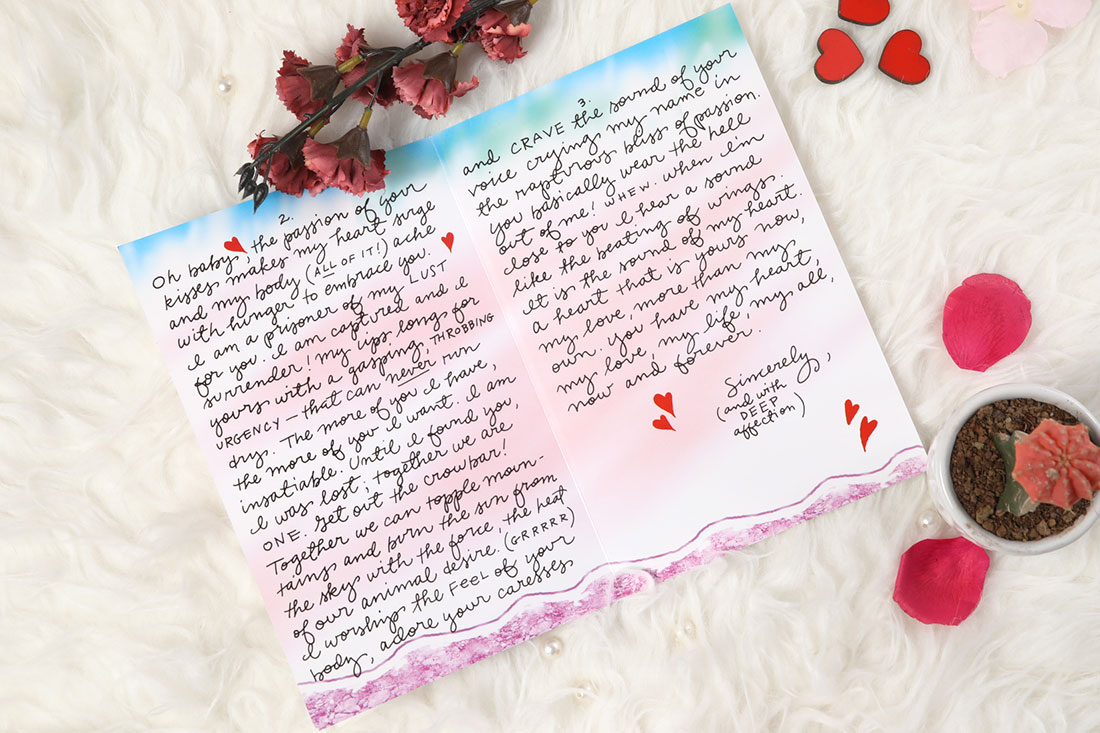 2.
Oh baby, the passion of your
kisses makes my heart surge
and my body (ALL OF IT!) ache
with hunger to embrace you.
I am a prisoner of my LUST
for you. I am captured and I
surrender! My lips long for
yours with a gasping, THROBBING
URGENCY — that can never run
dry. The more of you I have,
the more of you I want. I am
insatiable. Until I found you,
I was lost; together we are
ONE. Get out the crowbar!
Together we can topple moun-
tains and burn the sun from
the sky with the force, the heat
of our animal desire. (GRRRRR)
I worship the FEEL of your
body, adore your caresses
3.
and CRAVE the sound of your
voice crying my name in
the rapturous bliss of passion.
You basically wear the hell
out of me! WHEW. When I'm
close to you I hear a sound
like the beating of wings.
It is the sound of my heart.
A heart that is yours now,
my love, more than my
own. You have my heart,
my love, my life, my all,
now and forever.
Sincerely,
(and with
DEEP
affection)